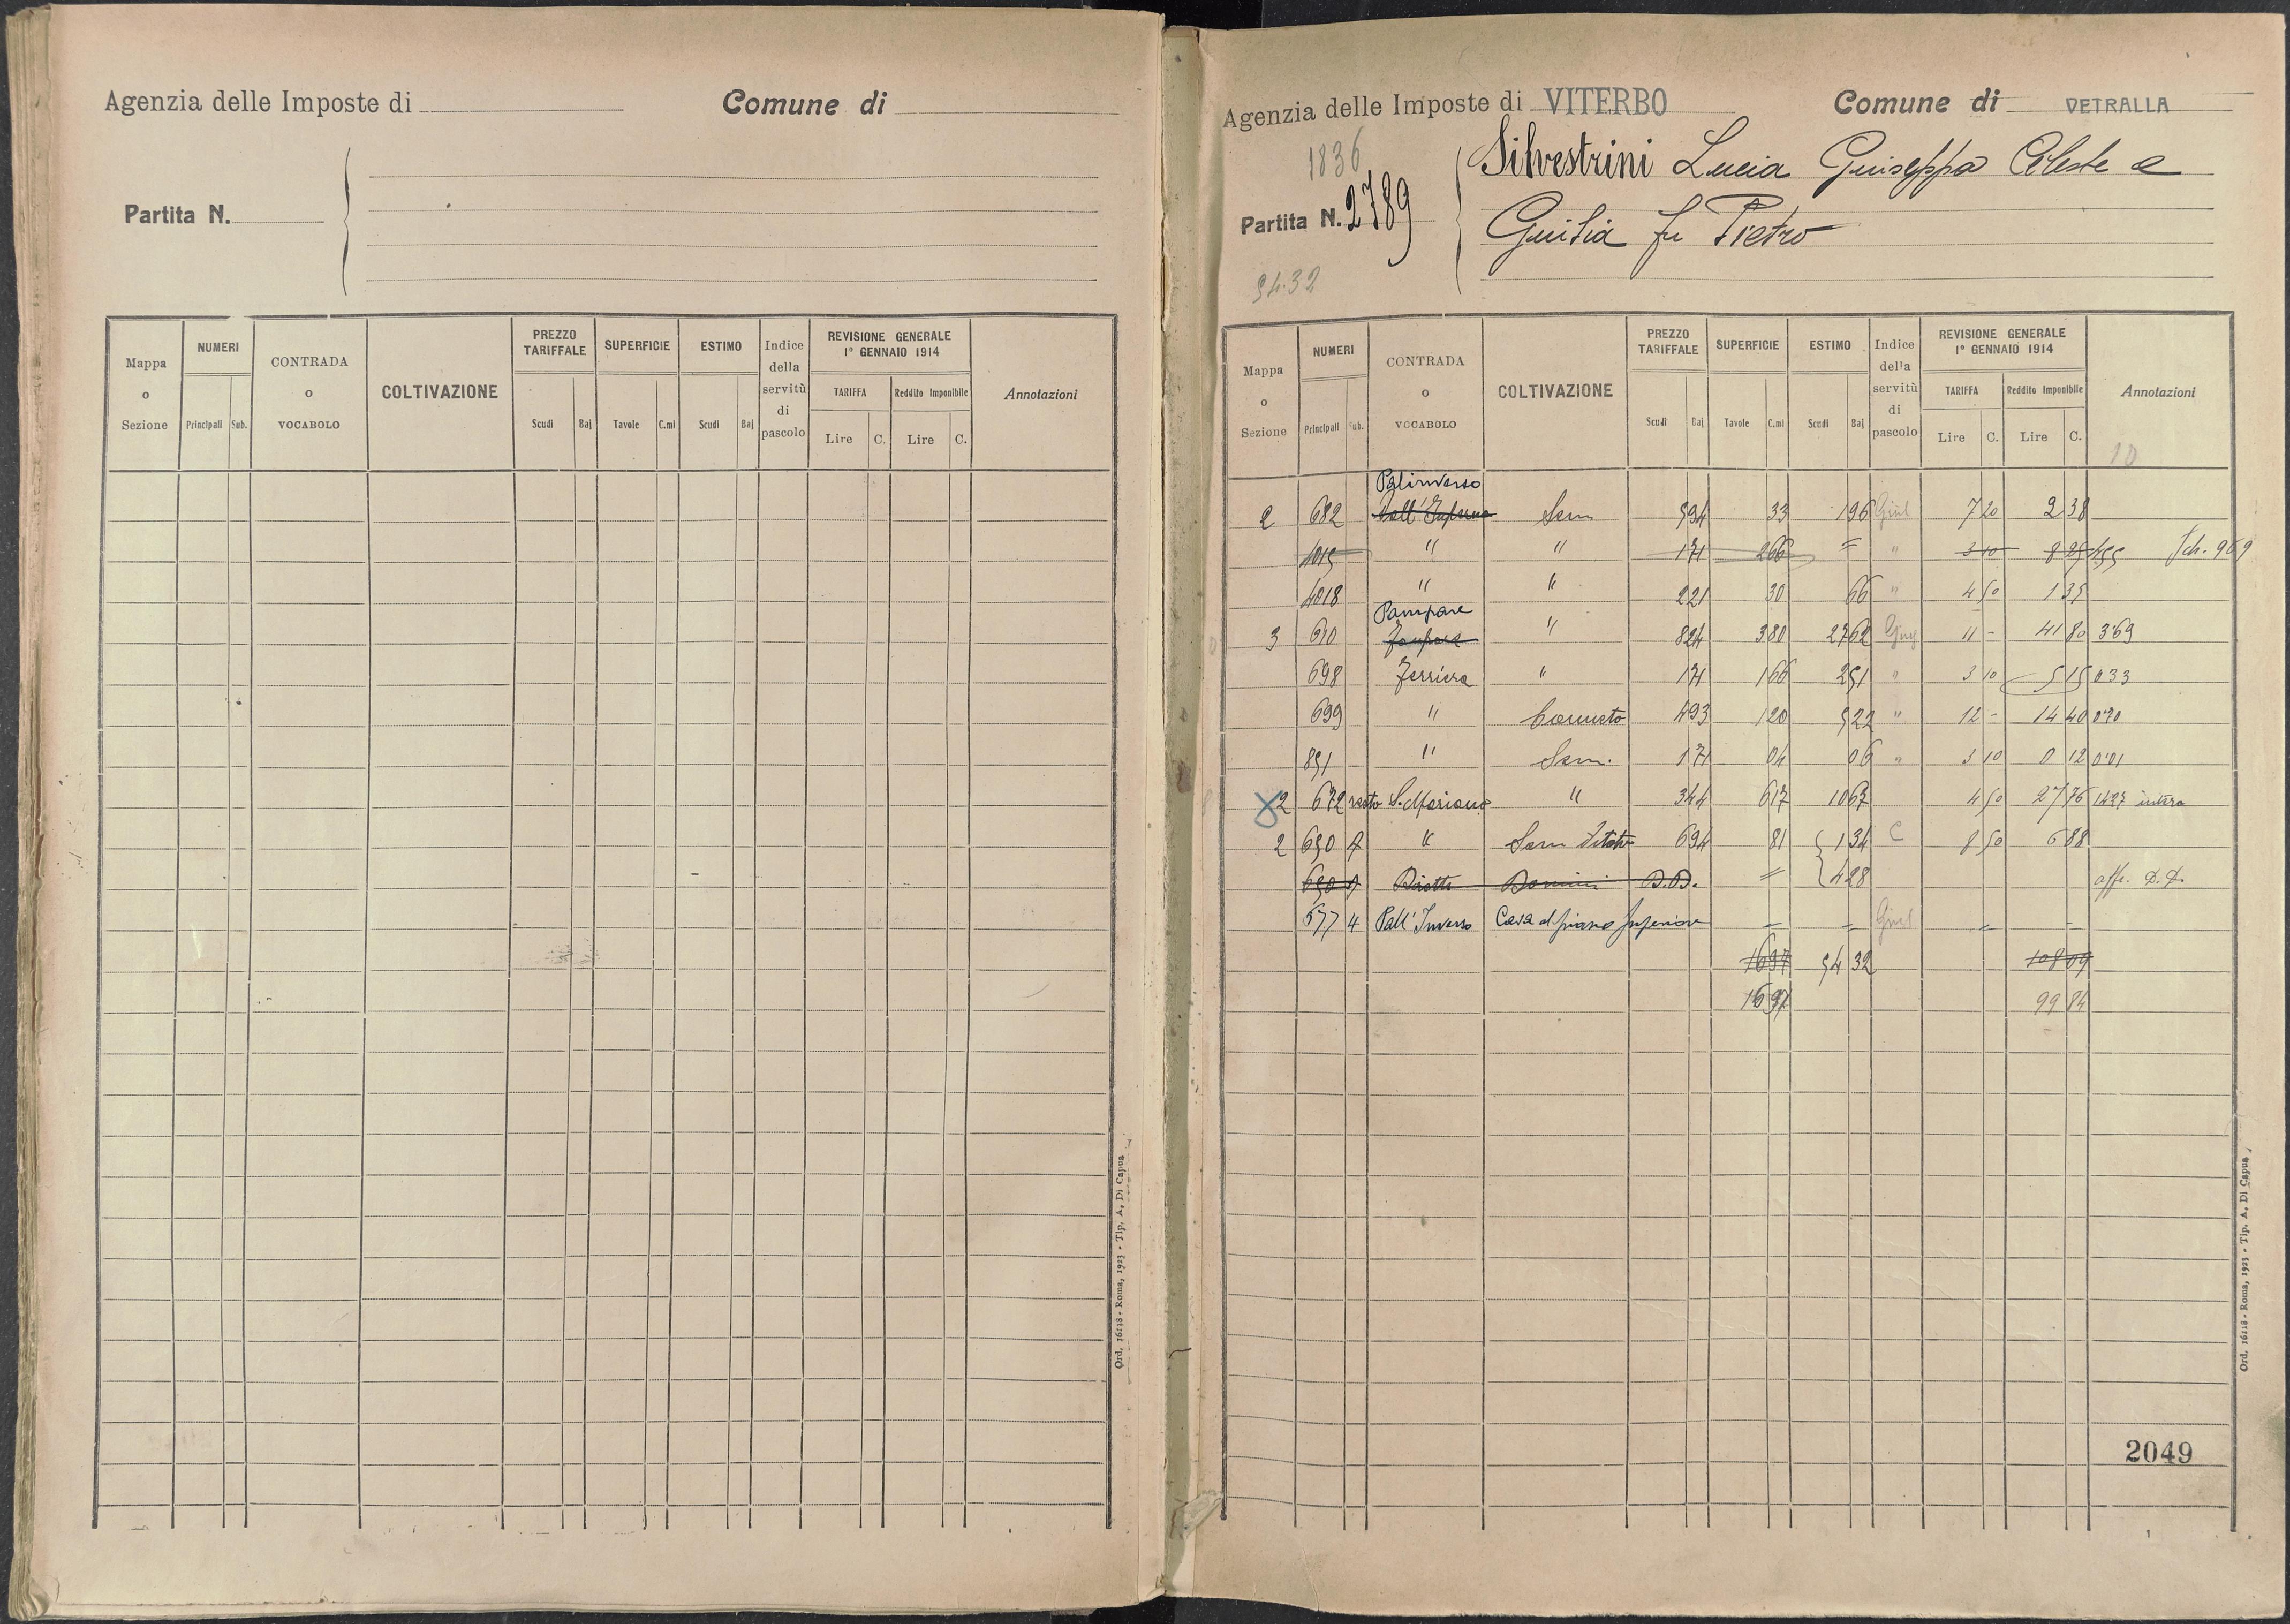 Agenzia delle Imposte di
Comune di
Partita N.
Mappa o Sezione
NUMERI
Principali Sub.
CONTRADA o VOCABOLO
COLTIVAZIONE
PREZZO TARIFFALE
Scudi Baj
SUPERFICIE
Tavole C.mi
ESTIMO
Scudi Baj
Indice della servitù di pascolo
REVISIONE GENERALE
1° GENNAIO 1914
TARIFFA Reddito Imponibile
Lire C. Lire C.
Annotazioni
Ord. 16118 - Roma, 1923 - Tip. A. Di Capua
Agenzia delle Imposte di VITERBO
Comune di VETRALLA
1836
Partita N. 2789
Silvestrini Lucia Giuseppa Celeste e
Giulia fu Pietro
54.32
Mappa o Sezione
NUMERI
Principali Sub.
CONTRADA o VOCABOLO
COLTIVAZIONE
PREZZO TARIFFALE
Scudi Baj
SUPERFICIE
Tavole C.mi
ESTIMO
Scudi Baj
Indice della servitù di pascolo
REVISIONE GENERALE
1° GENNAIO 1914
TARIFFA Reddito Imponibile
Lire C. Lire C.
Annotazioni
10
2 682 Sem 594 33 196 Giul 7 20 2 38
4015 " " 171 266 = " 3 10 8 25 Sch. 969
4018 " " 221 30 66 " 4 50 1 35
Pampare
3 610 " 824 380 27 62 Giug 11 - 41 80 3.69
698 Ferriera " 171 166 2 51 " 3 10 5 15 0 33
699 " Canneto 493 120 5 22 " 12 - 14 40 0.70
851 " Sem. 171 04 06 " 3 10 0 12 0.01
2 672 resto S. Mariano " 344 617 10 67 4 50 27 76 1427 intera
2 690 " Sem Vitato 694 81 1 34 C 8 50 6 88
Diretto Dominio D.D. = 4 28 affr. D.D.
577 4 Pall' Inverso Casa al piano superiore = = Giul = =
1697 54 32 108 09
1697 99 84
2049
Ord. 16118 - Roma, 1923 - Tip. A. Di Capua